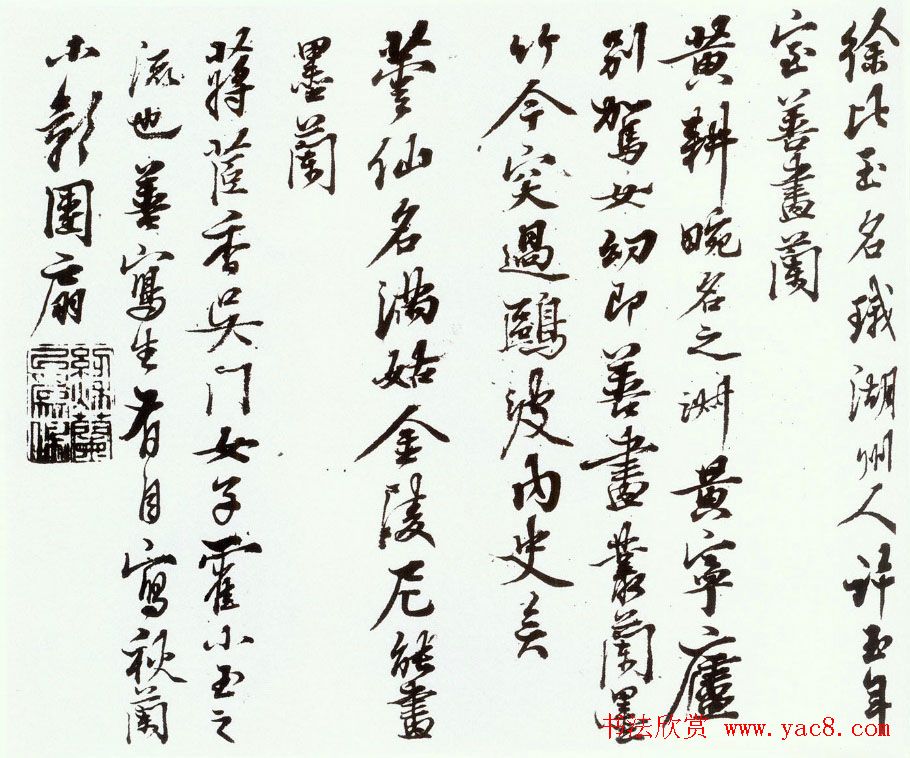 徐比玉名珴湖州人許玉年
室善畫蘭
黄耕畹名之淑黄寧廬
别駕女幼即善畫叢蘭墨
竹今突過鷗波内史矣
仙名滿姑金陵尼能畫
墨蘭
蔣茝香吴门女子霍小玉之
流也善寫生有自寫秋蘭
小影團扇
书法欣赏 www.yac8.com